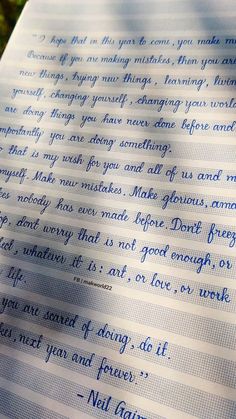 "I hope that in this year to come, you make m
Because if you are making mistakes, then you are
new things, trying new things, learning, livin
yourself, changing yourself, changing your worl
are doing things you have never done before and
mportantly you are doing something.
that is my wish for you and all of us and m
myself. Make new mistakes. Make glorious, ama
kes nobody has ever made before. Don't freez
op, dont worry that is not good enough, or
fect, whatever it is: art, or love, or work
r life.
FB | miakworld22
you are scared of doing, do it.
kes, next year and forever."
- Neil Gaim